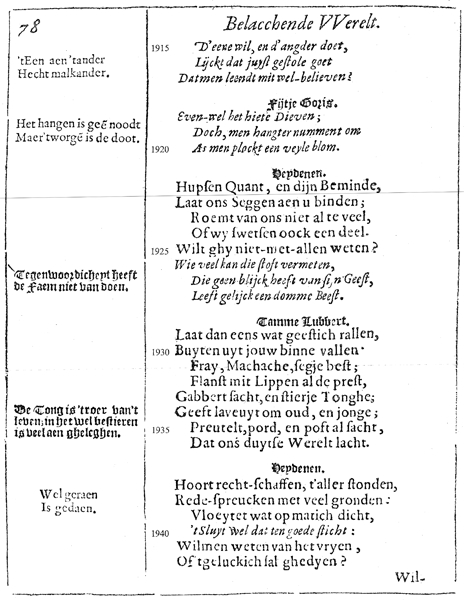 78
Belacchende VVerelt.
'tEen aen 'tander
Hecht malkander.
1915 D'eene wil, en d'angder doet,
Lijckt dat juyst gestole goet
Datmen leendt mit wel-believen?
Fijtje Goris.
Het hangen is geē noodt
Maer 'tworgē is de doot.
Even-wel het hiete Dieven;
Doch, men hangter numment om
1920 As men plockt een veyle blom.
Heydenen.
Hupsen Quant, en dijn Beminde,
Laat ons Seggen aen u binden;
Roemt van ons niet al te veel,
Of wy swetsen oock een deel.
1925 Wilt ghy niet-met-allen weten?
Tegenwoordicheyt heeft
de Faem niet van doen.
Wie veel kan die stoft vermeten,
Die geen blijck heeft van sijn Geest,
Leeft gelijck een domme Beest.
Tamme Lubbert.
Laat dan eens wat geestich rallen,
1930 Buyten uyt jouw binne vallen.
Fray, Machache, segje best;
Flanst mit Lippen al de prest,
De Tong is 'troer van't
leven, in het wel bestieren
is veel aen gheleghen.
Gabbert sacht, en stierje Tonghe;
Geeft laveuyt om oud, en jonge;
1935 Preutelt, pord, en post al sacht,
Dat ons duytse Werelt lacht.
Heydenen.
Wel geraen
Is gedaen.
Hoort recht-schaffen, t'aller stonden,
Rede-spreucken met veel gronden:
Vloeytet wat op matich dicht,
1940 'tSluyt wel dat ten goede sticht:
Wilmen weten van het vryen,
Of 'tgeluckich sal ghedyen?
Wil-